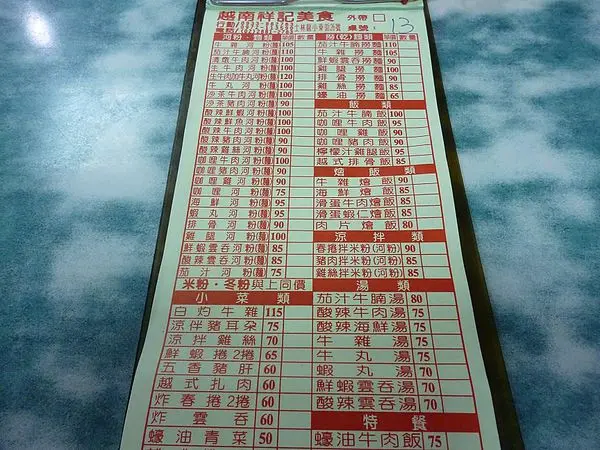 越南祥記美食
外帶
桌號:
13
河粉·麵類
牛雜河粉(麵) 105
茄汁牛腩河粉(麵) 110
清燉牛肉河粉(麵) 100
生牛肉河粉(麵) 100
生牛肉加牛丸河粉(麵) 120
牛丸河粉(麵) 90
沙茶牛肉河粉(麵) 100
沙茶豬肉河粉(麵) 90
酸辣鮮蝦河粉(麵) 100
酸辣鮮魚河粉(麵) 100
酸辣牛肉河粉(麵) 100
酸辣豬肉河粉(麵) 90
酸辣雞絲河粉(麵) 90
咖哩牛肉河粉(麵) 100
咖哩豬肉河粉(麵) 90
咖哩雞河粉(麵) 90
咖哩河粉(麵) 75
海鮮河粉(麵) 95
蝦丸河粉(麵) 95
排骨河粉(麵) 90
雞腿河粉(麵) 100
鮮蝦雲吞河粉(麵) 85
酸辣雲吞河粉(麵) 85
茄汁河粉(麵) 75
米粉·冬粉與上同價
小菜類
白灼牛雜 115
涼伴豬耳朵 75
涼拌雞絲 70
鮮蝦捲2捲 65
五香豬肝 60
越式扎肉 60
炸春捲2捲 60
炸雲吞 60
蠔油青菜 50
撈(乾)麵類
茄汁牛腩撈麵 110
牛雜撈麵 105
鮮蝦雲吞撈麵 90
雞腿撈麵 100
排骨撈麵 90
雞絲撈麵 85
蠔油撈麵 65
飯類
茄汁牛腩飯 100
咖哩牛肉飯 95
咖哩雞飯 90
咖哩豬肉飯 90
檸檬汁雞腿飯 95
越式排骨飯 85
燴飯類
牛雜燴飯 90
海鮮燴飯 85
滑蛋牛肉燴飯 90
滑蛋蝦仁燴飯 85
肉片燴飯 80
涼拌類
春捲拌米粉(河粉) 90
豬肉拌米粉(河粉) 85
雞絲拌米粉(河粉) 85
湯類
茄汁牛腩湯 80
酸辣牛肉湯 75
酸辣海鮮湯 75
牛雜湯 75
牛丸湯 70
蝦丸湯 70
鮮蝦雲吞湯 70
酸辣雲吞湯 70
特餐
蠔油牛肉飯 75